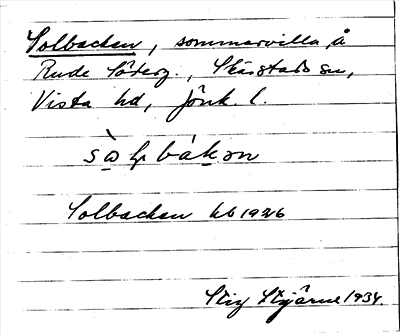 Solbacken, sommarvilla å
Rude Söderg., Skärstads sn,
Vista hd, Jönk. l.
Solbacken hb 1926
Stig Stjärne 1934.